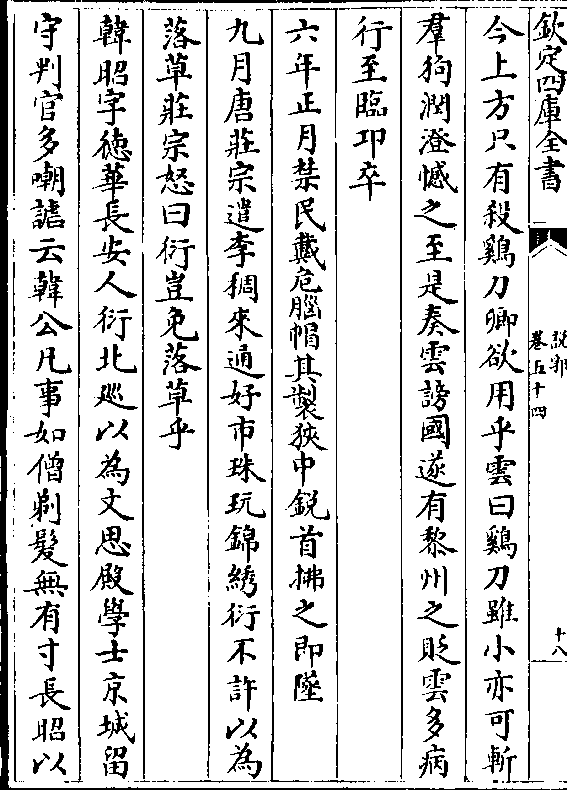 欽定四庫全書
說郛
卷五十四
十八
今上方只有殺鷄刀卿欲用乎雲曰鷄刀雖小亦可斬
羣狗潤澄憾之至是奏雲謗國遂有黎州之貶雲多病
行至臨卭卒
六年正月禁民戴危腦帽其製狹中銳首拂之即墜
九月唐莊宗遣李稠來通好市珠玩錦綉衍不許以為
落草莊宗怒曰衍豈免落草乎
韓昭字德華長安人衍北廵以為文思殿學士京城留
守判官多嘲謔云韓公凡事如僧剃髮無有寸長昭以